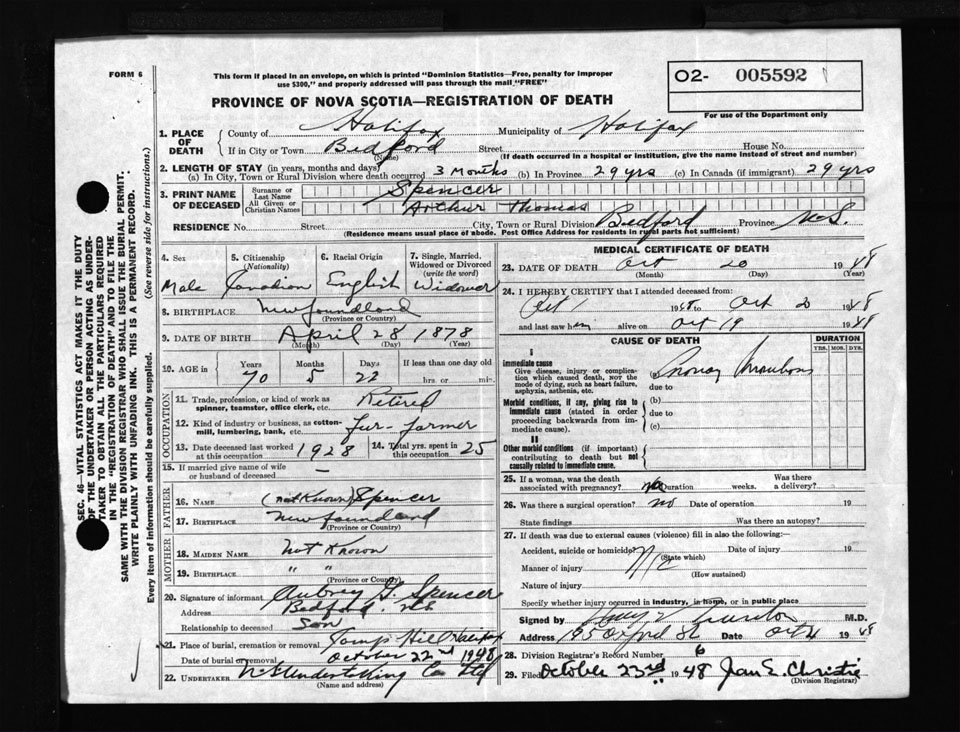 FORM 6
This form if placed in an envelope, on which is printed "Dominion Statistics—Free, penalty for improper
use $300," and properly addressed will pass through the mail "FREE"
O2- 005592
For use of the Department only
PROVINCE OF NOVA SCOTIA—REGISTRATION OF DEATH
1. PLACE OF DEATH
County of Halifax Municipality of Halifax
If in City or Town Bedford Street House No.
(Name) (If death occurred in a hospital or institution, give the name instead of street and number)
2. LENGTH OF STAY (in years, months and days)
(a) In City, Town or Rural Division where death occurred 3 Months (b) In Province 29 yrs (c) In Canada (if immigrant) 29 yrs
3. PRINT NAME OF DECEASED
Surname or Last Name Spencer
All Given or Christian Names Arthur Thomas
RESIDENCE No. Street City, Town or Rural Division Bedford Province N.S.
(Residence means usual place of abode. Post Office Address for residents in rural parts not sufficient)
4. Sex 5. Citizenship (Nationality) 6. Racial Origin 7. Single, Married, Widowed or Divorced (write the word)
Male Canadian English Widower
8. BIRTHPLACE Newfoundland
(Province or Country)
9. DATE OF BIRTH April 28 1878
(Month) (Day) (Year)
10. AGE in Years Months Days If less than one day old
70 5 22 hrs. or min.
OCCUPATION
11. Trade, profession, or kind of work as spinner, teamster, office clerk, etc. Retired
12. Kind of industry or business, as cotton-mill, lumbering, bank, etc. fur-farmer
13. Date deceased last worked at this occupation 1928 14. Total yrs. spent in this occupation 25
15. If married give name of wife or husband of deceased —
FATHER
16. NAME (not known) Spencer
17. BIRTHPLACE Newfoundland
(Province or Country)
MOTHER
18. MAIDEN NAME Not Known
19. BIRTHPLACE " "
(Province or Country)
20. Signature of informant Aubrey G. Spencer
Address Bedford.
Relationship to deceased Son
21. Place of burial, cremation or removal Camp Hill Halifax
Date of burial or removal October 22nd 1948
22. UNDERTAKER N.S. Undertaking Co Ltd
(Name and address)
MEDICAL CERTIFICATE OF DEATH
23. DATE OF DEATH Oct 20 1948
(Month) (Day) (Year)
24. I HEREBY CERTIFY that I attended deceased from:
Oct 1 1948 to Oct 20 1948
and last saw him alive on Oct 19 1948
CAUSE OF DEATH DURATION
YRS. MOS. DYS.
I
Immediate cause
Give disease, injury or complication which caused death, NOT the mode of dying, such as heart failure, asphyxia, asthenia, etc.
(a)
due to
Morbid conditions, if any, giving rise to immediate cause (stated in order proceeding backwards from immediate cause).
(b)
due to
(c)
II
Other morbid conditions (if important) contributing to death but not causally related to immediate cause.
25. If a woman, was the death associated with pregnancy? no Duration weeks. Was there a delivery?
26. Was there a surgical operation? no Date of operation 19
State findings Was there an autopsy?
27. If death was due to external causes (violence) fill in also the following:
Accident, suicide or homicide? Date of injury 19
(State which)
Manner of injury
(How sustained)
Nature of injury
Specify whether injury occurred in industry, in home, or in public place
Signed by M.D.
Address 195 Oxford St Date Oct 1948
28. Division Registrar's Record Number 6
29. Filed October 23rd 1948 Jean E. Christie
(Division Registrar)
SEC. 46—VITAL STATISTICS ACT MAKES IT THE DUTY
OF THE UNDERTAKER OR PERSON ACTING AS UNDER-
TAKER TO OBTAIN ALL THE PARTICULARS REQUIRED
IN THE "REGISTRATION OF DEATH" AND TO FILE THE
SAME WITH THE DIVISION REGISTRAR WHO SHALL ISSUE THE BURIAL PERMIT.
WRITE PLAINLY WITH UNFADING INK. THIS IS A PERMANENT RECORD.
Every item of information should be carefully supplied. (See reverse side for instructions.)